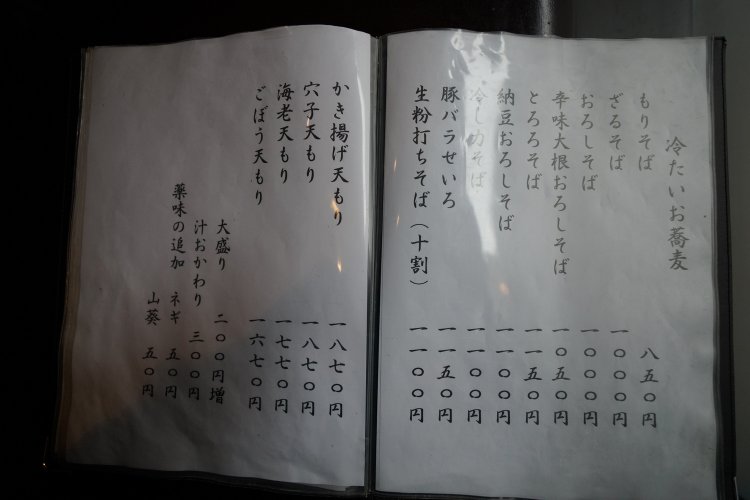 冷たいお蕎麦
もりそば 八五〇円
ざるそば 一〇〇〇円
おろしそば 一〇〇〇円
辛味大根おろしそば 一〇五〇円
とろろそば 一一五〇円
納豆おろしそば 一一〇〇円
冷し力そば 一一〇〇円
豚バラせいろ 一一五〇円
生粉打ちそば(十割) 一一〇〇円
かき揚げ天もり 一八七〇円
穴子天もり 一八七〇円
海老天もり 一七七〇円
ごぼう天もり 一六七〇円
大盛り 二〇〇円増
汁おかわり 三〇〇円
薬味の追加 ネギ 五〇円
山葵 五〇円